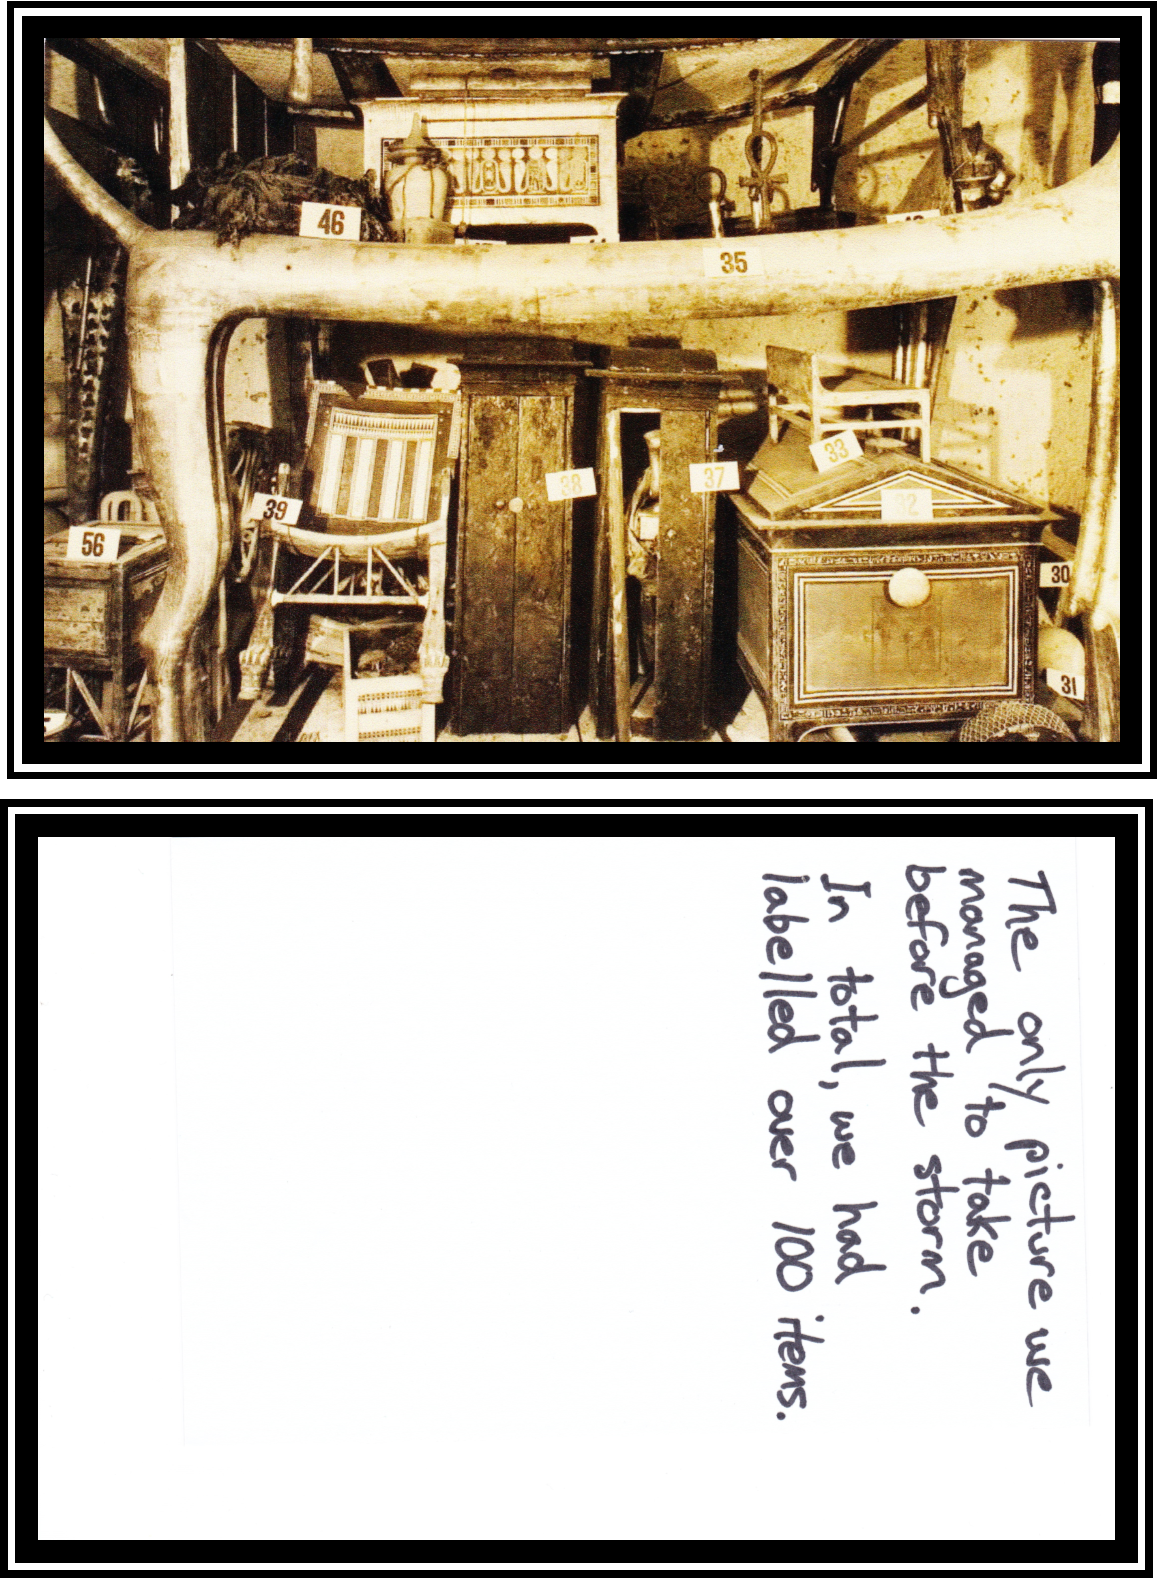 46
35
33
38
37
32
39
56
30
31
The only picture we
managed to take
before the storm.
In total, we had
labelled over 100 items.